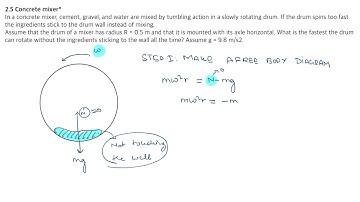 2.5 Concrete mixer*
In a concrete mixer, cement, gravel, and water are mixed by tumbling action in a slowly rotating drum. If the drum spins too fast
the ingredients stick to the drum wall instead of mixing.
Assume that the drum of a mixer has radius R = 0.5 m and that it is mounted with its axle horizontal. What is the fastest the drum
can rotate without the ingredients sticking to the wall all the time? Assume g = 9.8 m/s2.
ω
STEP I: MAKE A FREE BODY DIAGRAM
mω²r = N - mg
0
mω²r = -m
N=0
Not touching
the wall
mg